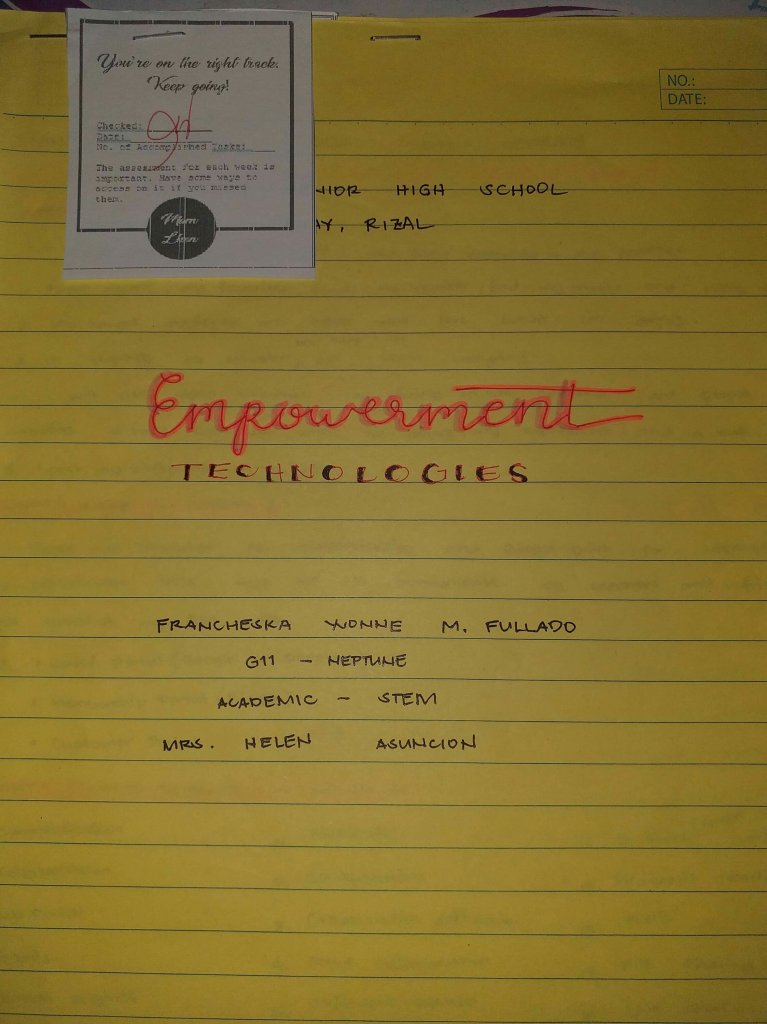 You're on the right track.
Keep going!
Checked:
Date:
No. of Accomplished Tasks:
The assessment for each week is
important. Have some ways to
access on it if you missed
them.
Mam
NO.:
DATE:
NIOR HIGH SCHOOL
AY, RIZAL
Empowerment
TECHNOLOGIES
FRANCHESKA YVONNE M. FULLADO
G11 - NEPTUNE
ACADEMIC - STEM
MRS. HELEN ASUNCION